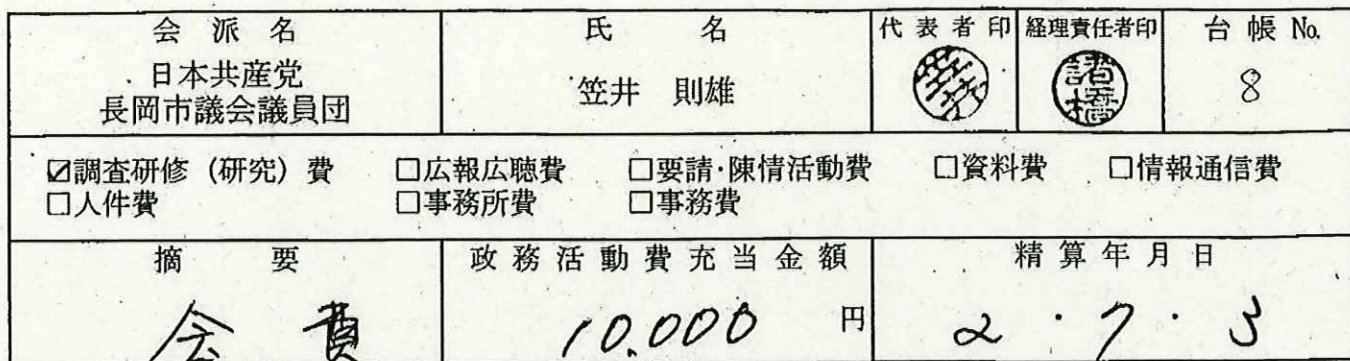 会派名 氏名 代表者印 経理責任者印 台帳No.
日本共産党
長岡市議会議員団
笠井 則雄
諸橋
8
☑調査研修(研究)費 □広報広聴費 □要請・陳情活動費 □資料費 □情報通信費
□人件費 □事務所費 □事務費
摘要 政務活動費充当金額 精算年月日
会費 10,000 円 2・7・3